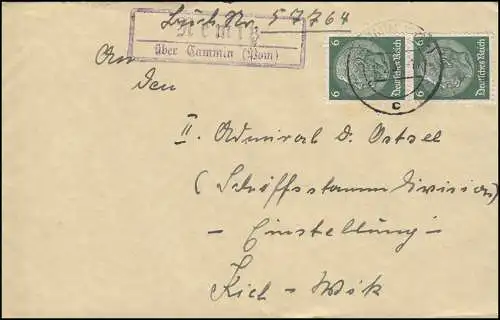 Buch Nr. 57764
Nemitz
über Cammin (Pom)
6 Deutsches Reich
6 Deutsches Reich
c
An
den
II. Admiral d. Ostsee
(Schiffsstammdivision)
- Einstellung -
Kiel - Wik